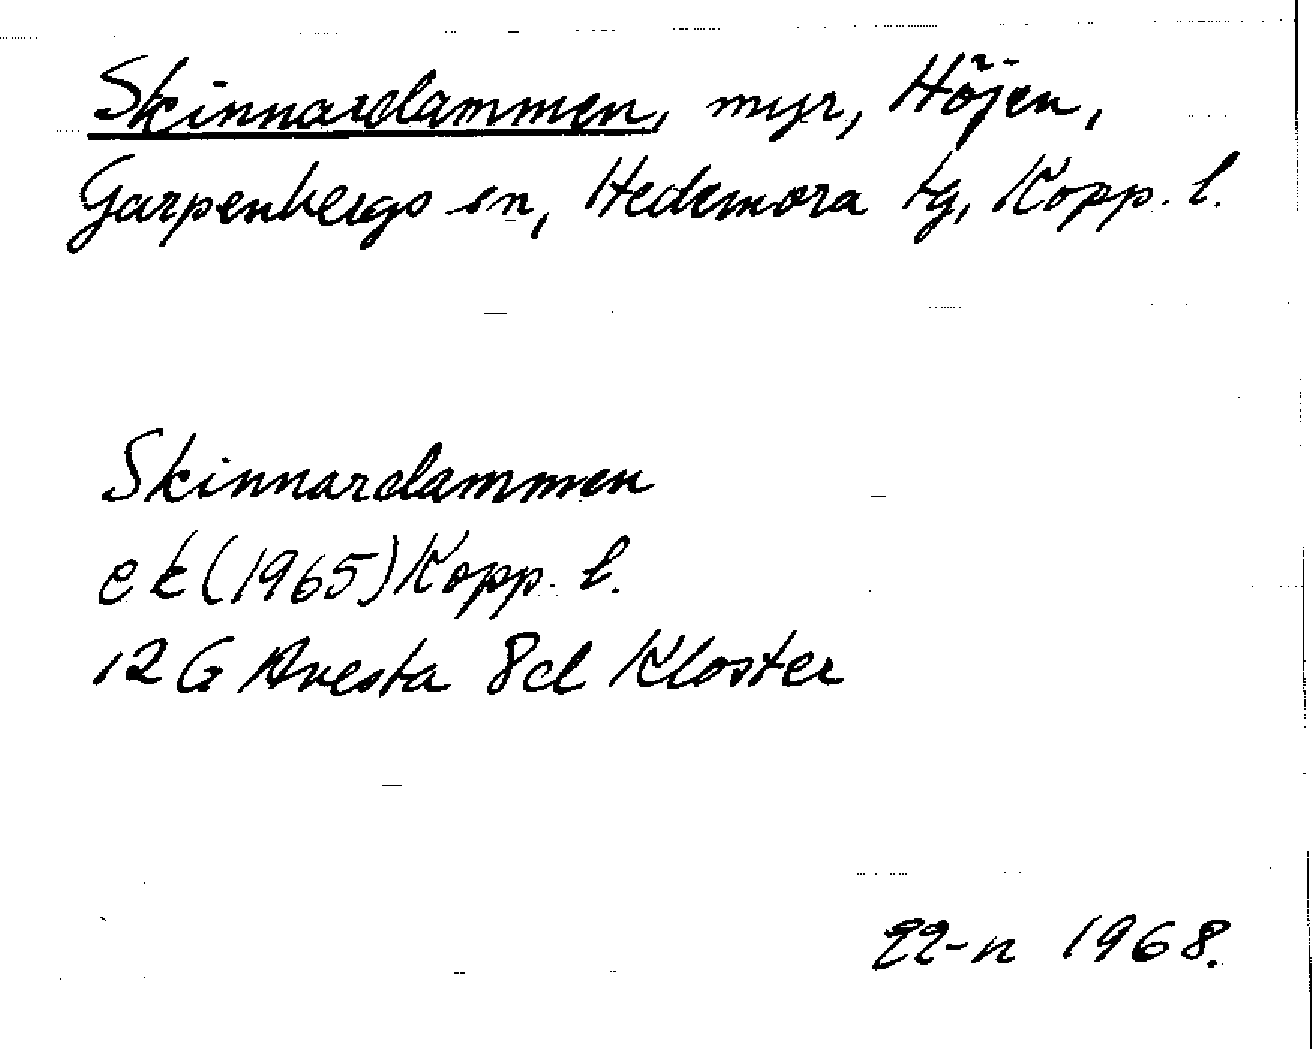 Skinnardammen, myr, Höjen,
Garpenbergs sn, Hedemora tg, Kopp. l.
Skinnardammen
ek (1965) Kopp. l.
12 G Avesta 8cd Kloster
1968.